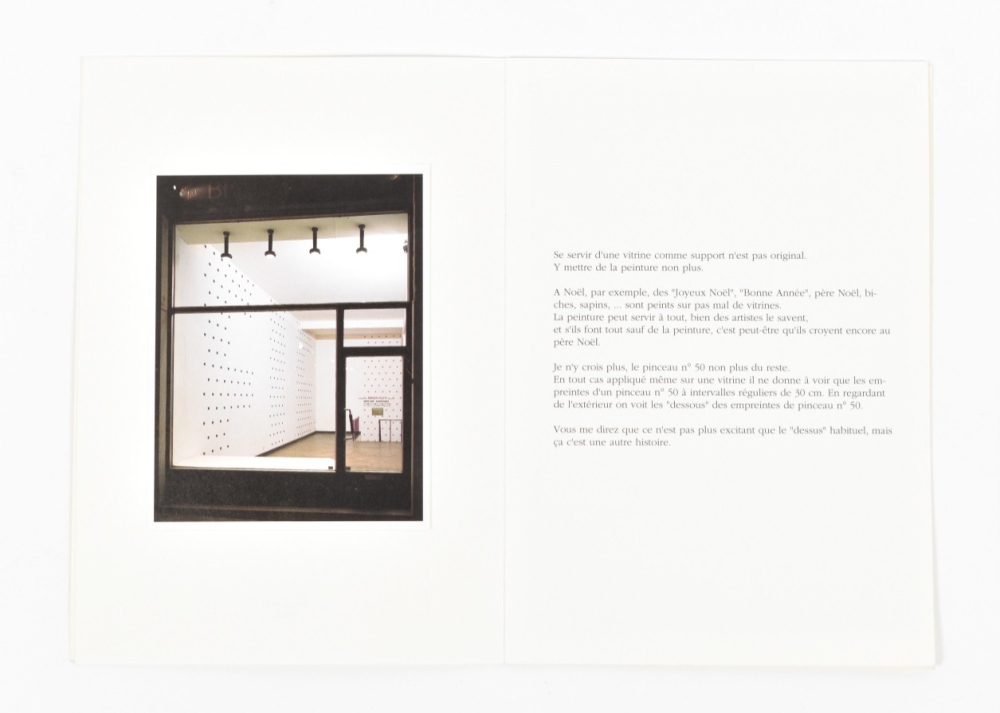 Se servir d'une vitrine comme support n'est pas original.
Y mettre de la peinture non plus.
A Noël, par exemple, des "Joyeux Noël", "Bonne Année", père Noël, bi-
ches, sapins, ... sont peints sur pas mal de vitrines.
La peinture peut servir à tout, bien des artistes le savent,
et s'ils font tout sauf de la peinture, c'est peut-être qu'ils croyent encore au
père Noël.
Je n'y crois plus, le pinceau n° 50 non plus du reste.
En tout cas appliqué même sur une vitrine il ne donne à voir que les em-
preintes d'un pinceau n° 50 à intervalles réguliers de 30 cm. En regardant
de l'extérieur on voit les "dessous" des empreintes de pinceau n° 50.
Vous me direz que ce n'est pas plus excitant que le "dessus" habituel, mais
ça c'est une autre histoire.